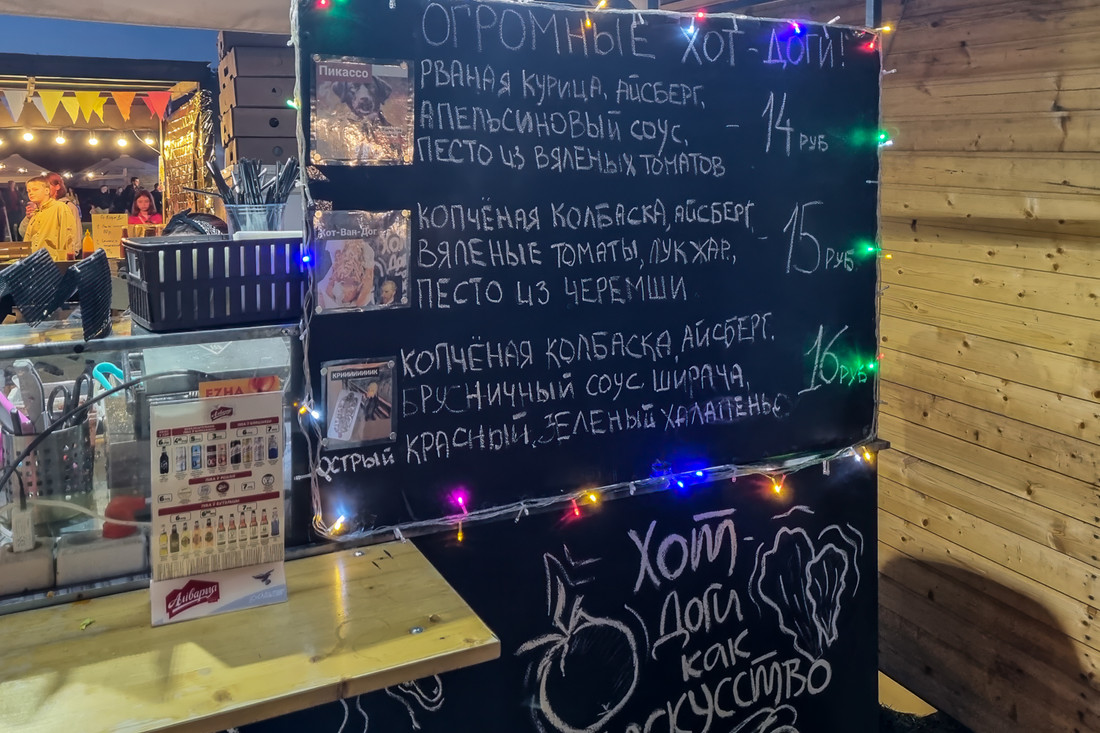 ОГРОМНЫЕ ХОТ-ДОГИ!
Пикассо
РВАНАЯ КУРИЦА, АЙСБЕРГ,
АПЕЛЬСИНОВЫЙ СОУС,
ПЕСТО ИЗ ВЯЛЕНЫХ ТОМАТОВ
- 14 РУБ
Хот-Ван-Дог
КОПЧЁНАЯ КОЛБАСКА, АЙСБЕРГ,
ВЯЛЕНЫЕ ТОМАТЫ, ЛУК ЖАР.,
ПЕСТО ИЗ ЧЕРЕМШИ
- 15 РУБ
КОПЧЁНАЯ КОЛБАСКА, АЙСБЕРГ,
БРУСНИЧНЫЙ СОУС, ШИРАЧА,
КРАСНЫЙ, ЗЕЛЕНЫЙ ХАЛАПЕНЬО
16 РУБ
ОСТРЫЙ
ХОТ-
ДОГИ
как
искусство
EZHA
Аливария